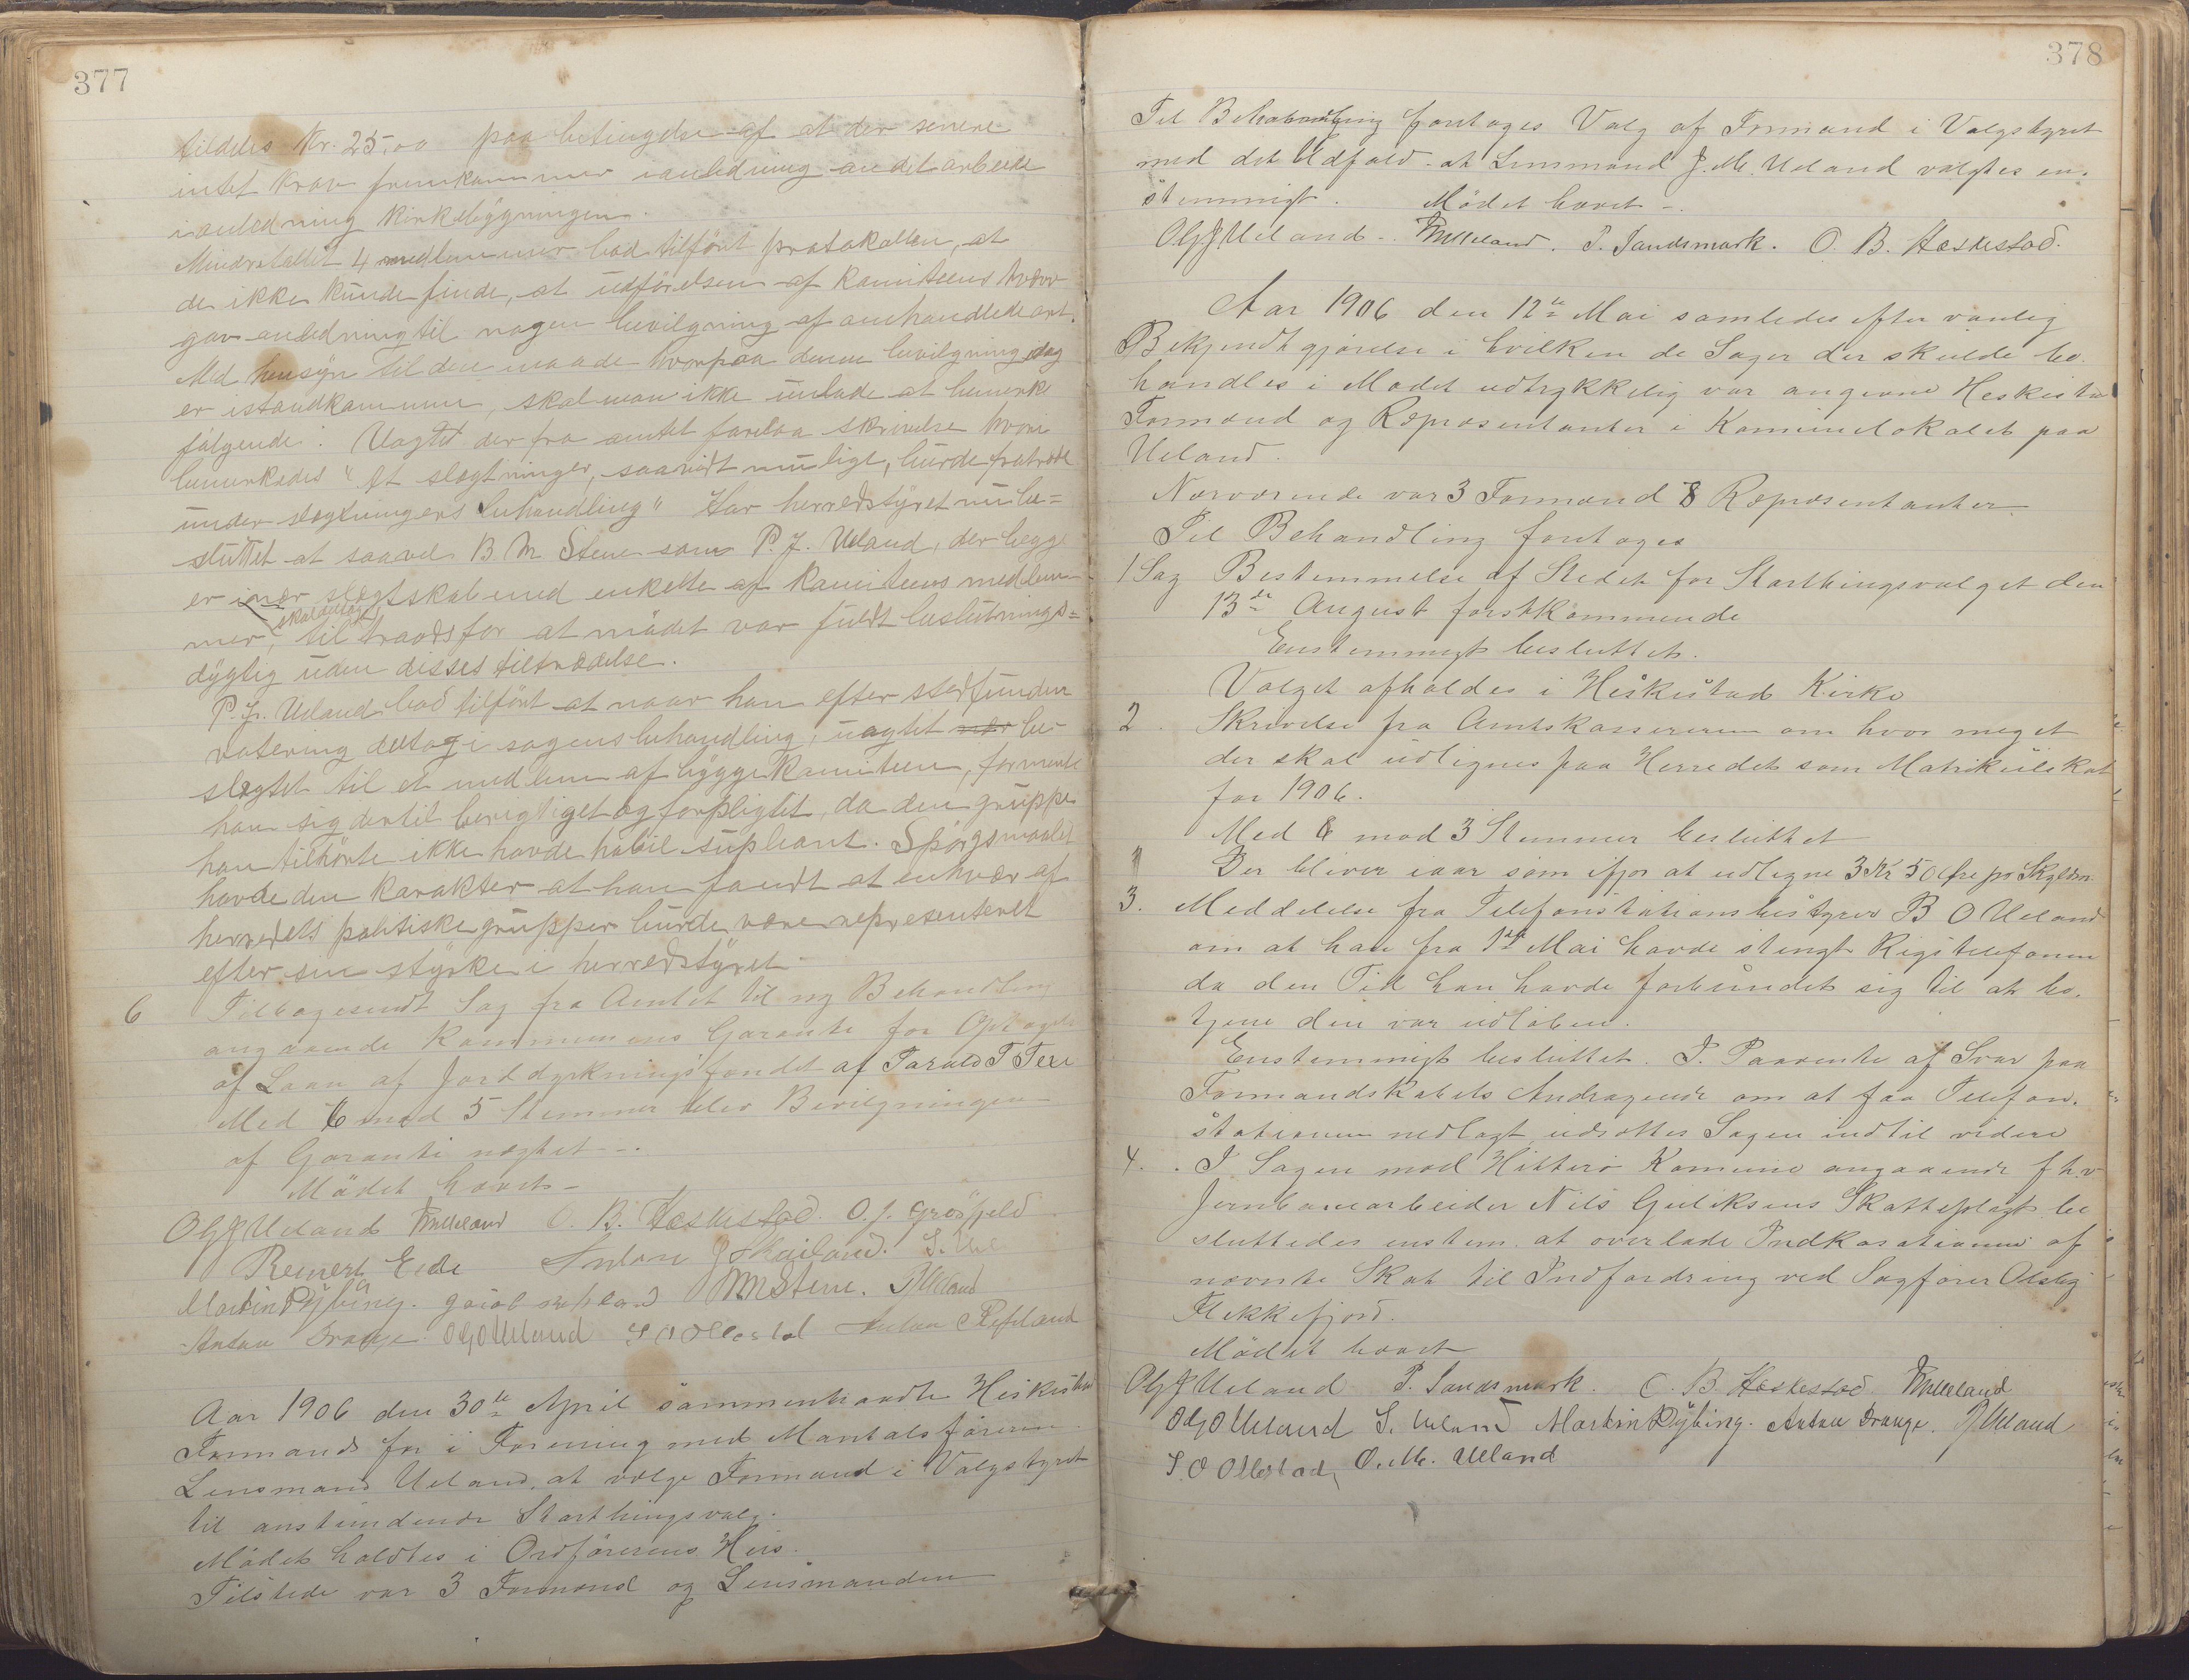 377
tildeles Kr. 25,00 paa betingelse af at der senere
intet krav fremkommer ianledning andet arbeide
ianledning kirkebygningen.
Mindretallet 4 medlemmer bad tilført protokollen, at
de ikke kunde finde, at udførelsen af komiteens hverv
gav anledning til nogen bevilgning af omhandlede art.
Med hensyn til den maade hvorpaa denne bevilgning idag
er istandkommen, skal man ikke unlade at bemerke
følgende: Uagtet der fra amtet forelaa skrivelse hvori
bemerkedes "At slegtninger, saavidt muligt, burde fratræde
under slegtningers behandling" Har herredstyret nu be=
sluttet at saavel B. M. Stene som P. J. Ueland, der begge
er inær slegtskab med enkelte af komiteens medlem
mer, skal deltage, til traads for at mødet var fuldt beslutnings=
dygtig uden disses tiltrædelse.
P. J. Ueland bad tilført at naar han efter stedfunden
votering deltog i sagens behandling, uagtet nær be-
slegtet til et medlem af byggekomiteen, formente
han sig dertil berigtiget og forpligtet, da den gruppe
han tilhørte ikke havde habil supleant. Spørgsmaalet
havde den karakter at han fandt at enhver af
herredets politiske grupper burde være representeret
efter sin styrke i herredstyret.
6 Tilbagesendt Sag fra Amtet til ny Behandling
angaaende Kommunens Garanti for Optagelse
af Laan af Jorddyrkningsfondet af Tarald T Tere
Med 6 mod 5 Stemmer blev Bevilgningen
af Garanti nægtet -.
Mödet hævet -
OlJUeland O. B. Heskestad. O. J. Grøsfjeld
Reinert Eide Skailand. S. Uel
Martin Dybing. BMStene. PJUeland
Anton Drange. OGOUeland S O Ollestad Anton Refsland
Aar 1906 den 30te April sammentraadte Heskestad
Formandskab i Forening med Mantalsføreren
Lensmand Ueland, at vælge Formand i Valgstyret
til anstundende Storthingsvalg.
Mødet holdtes i Ordførerens Hus.
Tilstede var 3 Formænd og Lensmanden
378
Til Behandling foretages Valg af Formand i Valgstyret
med det Udfald - at Lensmand J. M. Ueland valgtes en.
stemmigt. Mödet hævet -.
OlJUeland - P. Sandsmark. O. B. Heskestad.
Aar 1906 den 12te Mai samledes efter vanlig
Bekjendtgjørelse i hvilken de Sager der skulde be.
handles i Mødet udtrykkelig var angivne Heskestad
Formænd og Repræsentanter i Kommunelokalet paa
Ueland.
Nærværende var 3 Formænd 8 Repræsentanter
Til Behandling foretoges
1 Sag Bestemmelse af Stedet for Storthingsvalget den
13de August førstkommende
Enstemmigt besluttet.
Valget afholdes i Heskestad Kirke
2. Skrivelse fra Amtskassereren om hvor meget
der skal udlignes paa Herredet som Matrikulskat
for 1906.
Med 8 mod 3 Stemmer besluttet
Der bliver iaar som ifjor at udligne 3 Kr 50 Øre pr Skyldm.
3. Meddelelse fra Telefonstationsbestyrer B O Ueland
om at han fra 1ste Mai havde stengt Rigstelefonen
da den Tid han havde forbundet sig til at be.
tjene den var udløben.
Enstemmigt besluttet. I Paavente af Svar paa
Formandskabets Andragende om at faa Telefon.
stationen nedlagt, udsættes Sagen indtil videre
4. I Sagen mod Hitterö Komune angaaende fh.v
Jernbanearbeider Nils Guliksens Skatteplagt be
sluttedes enstem. at overlade Indkasationen af
nævnte Skat til Indfordring ved Sagfører Olsby
Flekkefjord.
Mødet hævet
OlJUeland P. Sandsmark. O. B. Heskestad
OGOUeland S. Ueland Martin Dybing. Anton Drange. PJUeland
S. O Ollestad, O. M. Ueland